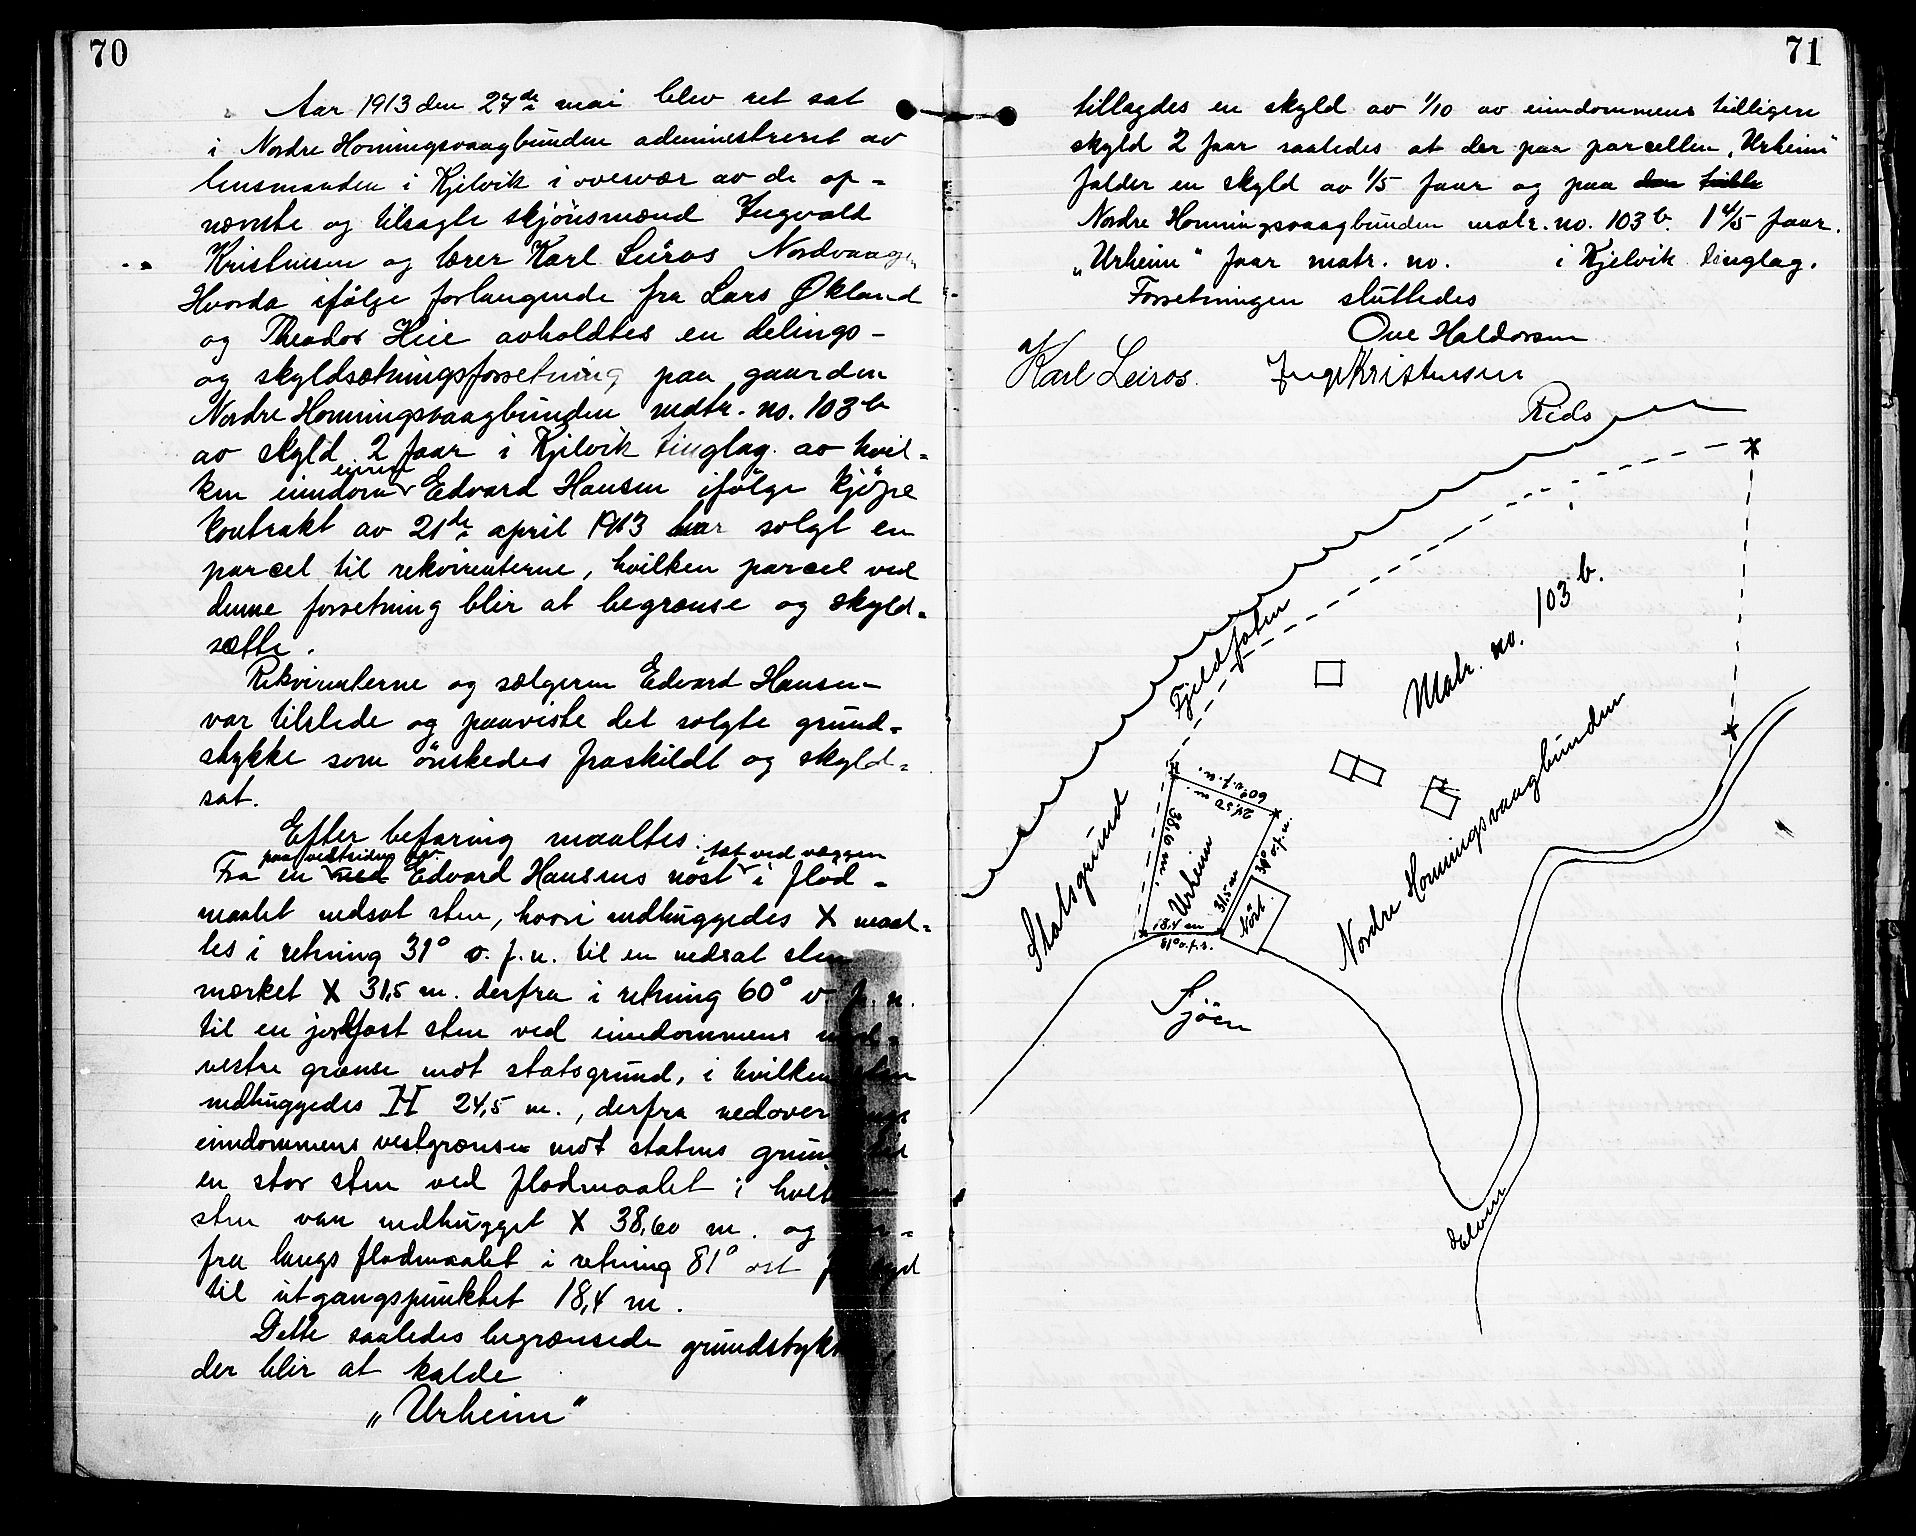 70
Aar 1913 den 27de mai blev ret sat
i Nordre Honningsvaagbunden administreret av
lensmanden i Kjelvik i overvær av de op-
nævnte og tilsagte skjönsmænd Ingvald
Kristensen og lærer Karl Leiros Nordvaagen
Hvorda ifölge forlangende fra Lars Økland
og Theodor Heie avholdtes en delings-
og skyldsætningsforretning paa gaarden
Nordre Honningsvaagbunden matr. no. 103 b
av skyld 2 faar i Kjelvik tinglag. av hvil-
ken eiendom eieren Edvard Hansen ifölge kjöpe
kontrakt av 21de april 1913 har solgt en
parcel til rekvirenterne, hvilken parcel ved
denne forretning blir at begrænse og skyld-
sætte.
Rekvirenterne og sælgeren Edvard Hansen
var tilstede og paaviste det solgte grund-
stykke som önskedes fraskildt og skyld-
sat.
Efter befaring maaltes:
Fra en ved paa vestsiden av Edvard Hansens nöst tæt ved væggen i flod-
maalet nedsat sten, hvori indhuggedes X maal-
tes i retning 31° v. f. n. til en nedsat sten
mærket X 31,5 m. derfra i retning 60° v. f. n.
til en jordfast sten ved eiendommens nord-
vestre grænse mot statsgrund, i hvilken sten
indhuggedes H 24,5 m., derfra nedover langs
eiendommens vestgrænse mot statens grund til
en stor sten ved flodmaalet i hvilken
sten var indhugget X 38,60 m. og der-
fra langs flodmaalet i retning 81° ost for syd
til utgangspunktet 18,4 m.
Dette saaledes begrænsede grundstykke
der blir at kalde
"Urheim"
71
tillagdes en skyld av 1/10 av eiendommens tidligere
skyld 2 faar saaledes at der paa parcellen "Urheim"
falder en skyld av 1/5 faar og paa den
Nordre Honningsvaagbunden matr. no. 103 b. 1 4/5 faar.
"Urheim" faar matr. no. i Kjelvik tinglag.
Forretningen sluttedes
Ove Haldorsen
Karl Leiros. Ingv Kristensen
Rids
Fjeldfoten
Matr. no. 103 b.
Statsgrund
60° v. f. n.
24,50 m.
38,6 m.
Urheim
31,5 m
31° v. f. n.
Nöst.
18,4 m
81° o. f. s.
Nordre Honningsvaagbunden
Sjöen
elven